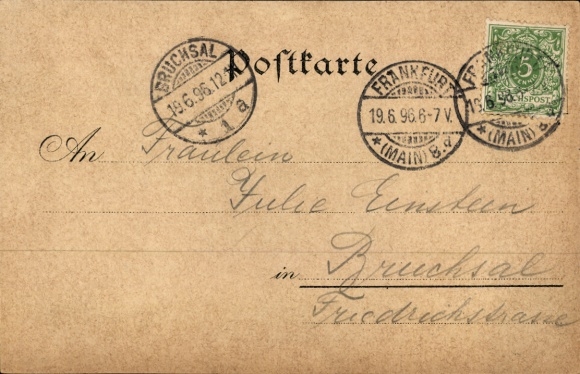 Postkarte
BRUCHSAL
19.6.96.12
1 a
FRANKFURT
19.6.96.6-7V.
(MAIN) 8.
5
REICHSPOST
An Fräulein
Julie Einstein
in Bruchsal
Friedrichstrasse